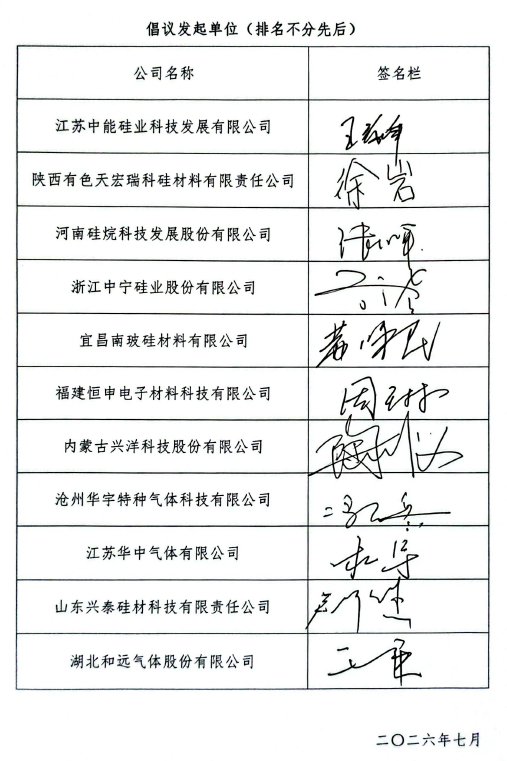 倡议发起单位（排名不分先后）
公司名称 签名栏
江苏中能硅业科技发展有限公司
陕西有色天宏瑞科硅材料有限责任公司 徐岩
河南硅烷科技发展股份有限公司
浙江中宁硅业股份有限公司
宜昌南玻硅材料有限公司
福建恒申电子材料科技有限公司
内蒙古兴洋科技股份有限公司
沧州华宇特种气体科技有限公司
江苏华中气体有限公司
山东兴泰硅材科技有限责任公司
湖北和远气体股份有限公司
二〇二六年七月